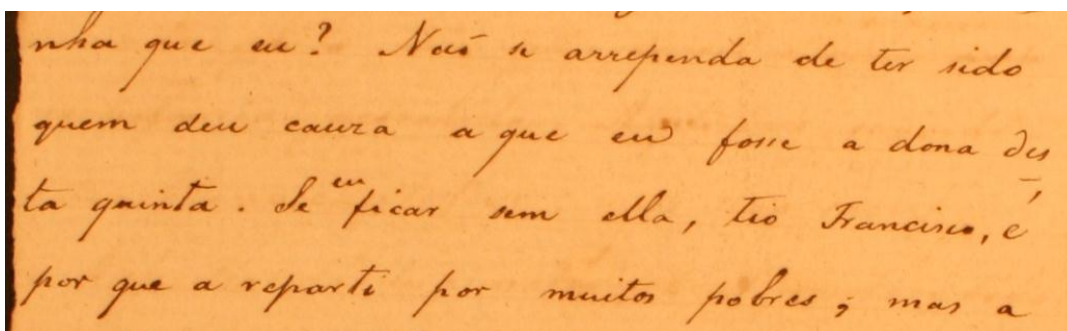 nha que eu? Não se arrependa de ter sido
quem deu cauza a que eu fosse a dona des
ta quinta. Se eu ficar sem ella, tio Francisco, é
por que a reparti por muitos pobres; mas a